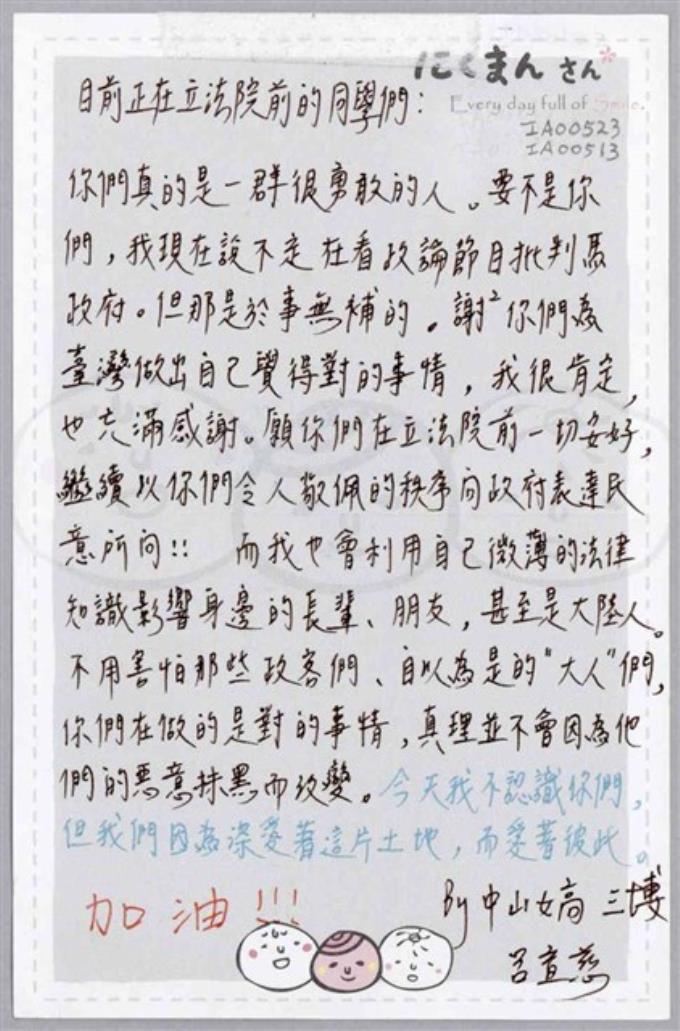 にくまんさん
Every day full of Smile.
IA00523
IA00513
目前正在立法院前的同學們：
你們真的是一群很勇敢的人。要不是你
們，我現在說不定在看政論節目批判馬
政府。但那是於事無補的。謝²你們為
臺灣做出自己覺得對的事情，我很肯定，
也充滿感謝。願你們在立法院前一切安好，
繼續以你們令人敬佩的秩序向政府表達民
意所向!! 而我也會利用自己微薄的法律
知識影響身邊的長輩、朋友，甚至是大陸人。
不用害怕那些政客們、自以為是的"大人"們，
你們在做的是對的事情，真理並不會因為他
們的惡意抹黑而改變。今天我不認識你們，
但我們因為深愛著這片土地，而愛著彼此。
加油!!!
By 中山女高 三博
呂宜慈